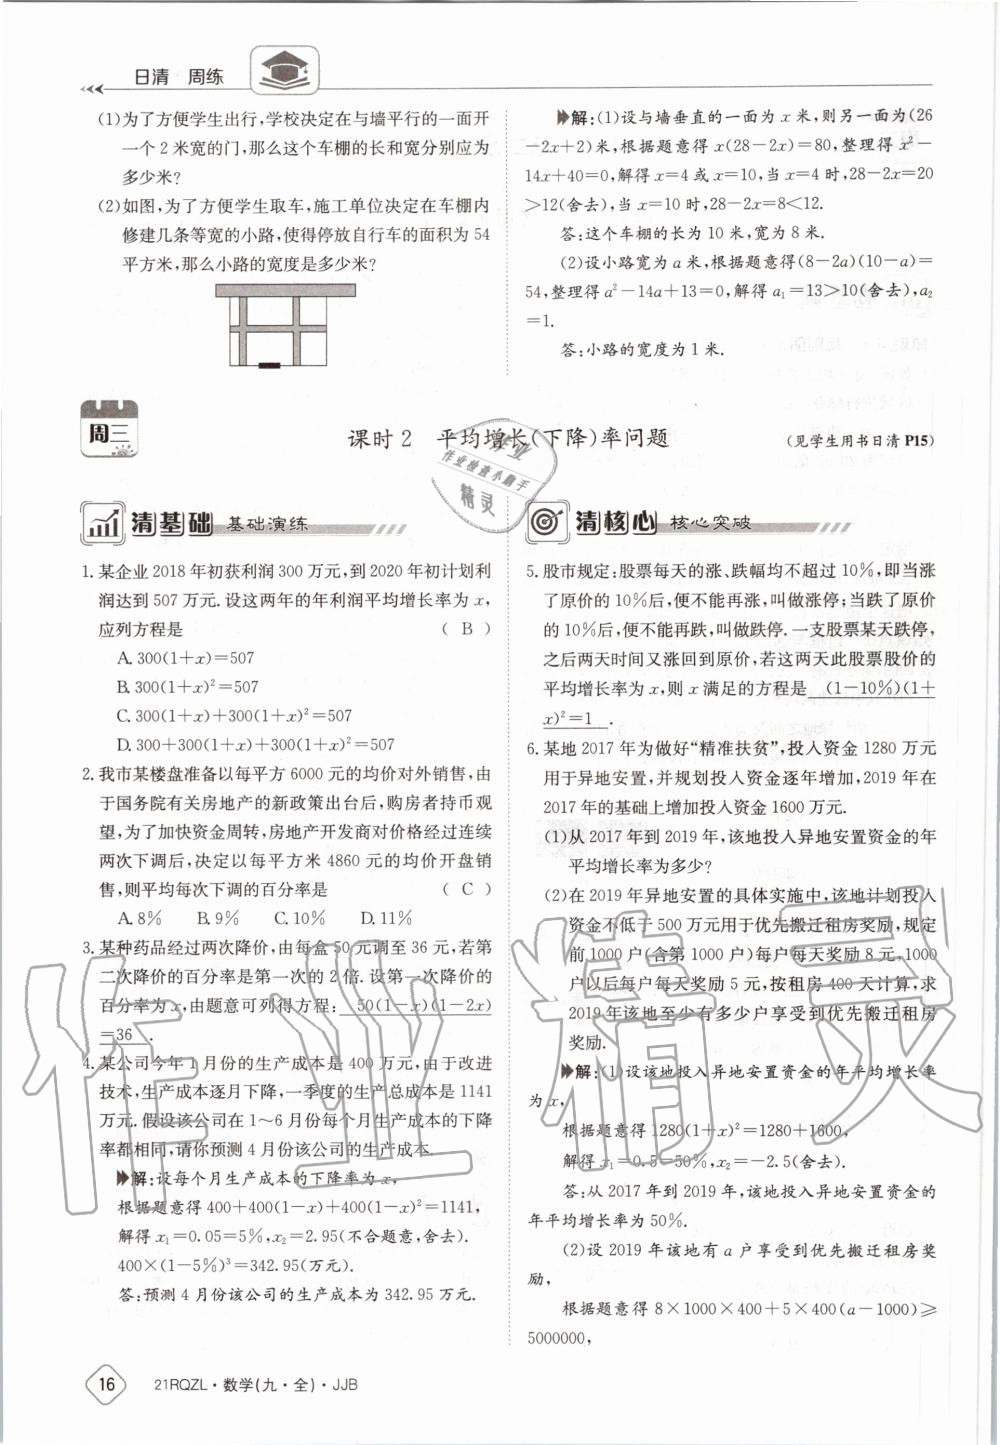 日清 周练
(1)为了方便学生出行,学校决定在与墙平行的一面开
一个2米宽的门,那么这个车棚的长和宽分别应为
多少米?
(2)如图,为了方便学生取车,施工单位决定在车棚内
修建几条等宽的小路,使得停放自行车的面积为54
平方米,那么小路的宽度是多少米?
解:(1)设与墙垂直的一面为x米,则另一面为(26
-2x+2)米,根据题意得x(28-2x)=80,整理得x²-
14x+40=0,解得x=4或x=10,当x=4时,28-2x=20
>12(舍去),当x=10时,28-2x=8<12.
答:这个车棚的长为10米,宽为8米.
(2)设小路宽为a米,根据题意得(8-2a)(10-a)=
54,整理得a²-14a+13=0,解得a₁=13>10(舍去),a₂
=1.
答:小路的宽度为1米.
周三
课时2 平均增长(下降)率问题
(见学生用书日清P15)
作业检查小助手
精灵
清基础 基础演练
1.某企业2018年初获利润300万元,到2020年初计划利
润达到507万元.设这两年的年利润平均增长率为x,
应列方程是 ( B )
A.300(1+x)=507
B.300(1+x)²=507
C.300(1+x)+300(1+x)²=507
D.300+300(1+x)+300(1+x)²=507
2.我市某楼盘准备以每平方6000元的均价对外销售,由
于国务院有关房地产的新政策出台后,购房者持币观
望,为了加快资金周转,房地产开发商对价格经过连续
两次下调后,决定以每平方米4860元的均价开盘销
售,则平均每次下调的百分率是 ( C )
A.8% B.9% C.10% D.11%
3.某种药品经过两次降价,由每盒50元调至36元.若第
二次降价的百分率是第一次的2倍.设第一次降价的
百分率为x,由题意可列得方程: 50(1-x)(1-2x)
=36 .
4.某公司今年1月份的生产成本是400万元,由于改进
技术,生产成本逐月下降,一季度的生产总成本是1141
万元.假设该公司在1~6月份每个月生产成本的下降
率都相同,请你预测4月份该公司的生产成本.
解:设每个月生产成本的下降率为x,
根据题意得400+400(1-x)+400(1-x)²=1141,
解得x₁=0.05=5%,x₂=2.95(不合题意,舍去).
400×(1-5%)³=342.95(万元).
答:预测4月份该公司的生产成本为342.95万元.
清核心 核心突破
5.股市规定:股票每天的涨、跌幅均不超过10%,即当涨
了原价的10%后,便不能再涨,叫做涨停;当跌了原价
的10%后,便不能再跌,叫做跌停.一支股票某天跌停,
之后两天时间又涨回到原价,若这两天此股票股价的
平均增长率为x,则x满足的方程是 (1-10%)(1+
x)²=1 .
6.某地2017年为做好“精准扶贫”,投入资金1280万元
用于异地安置,并规划投入资金逐年增加,2019年在
2017年的基础上增加投入资金1600万元.
(1)从2017年到2019年,该地投入异地安置资金的年
平均增长率为多少?
(2)在2019年异地安置的具体实施中,该地计划投入
资金不低于500万元用于优先搬迁租房奖励,规定
前1000户(含第1000户)每户每天奖励8元,1000
户以后每户每天奖励5元,按租房400天计算,求
2019年该地至少有多少户享受到优先搬迁租房
奖励.
解:(1)设该地投入异地安置资金的年平均增长率
为x,
根据题意得1280(1+x)²=1280+1600,
解得x₁=0.5=50%,x₂=-2.5(舍去).
答:从2017年到2019年,该地投入异地安置资金的
年平均增长率为50%.
(2)设2019年该地有a户享受到优先搬迁租房奖
励,
根据题意得8×1000×400+5×400(a-1000)≥
5000000,
作业精灵
16 21RQZL·数学(九·全)·JJB